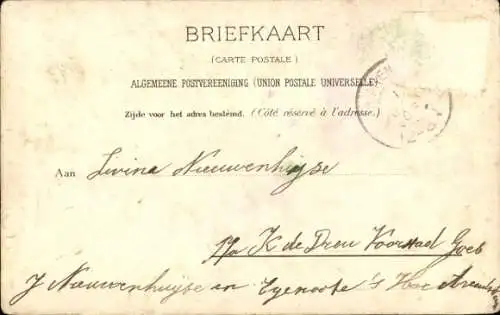 BRIEFKAART
(CARTE POSTALE)
ALGEMEENE POSTVEREENIGING (UNION POSTALE UNIVERSELLE)
Zijde voor het adres bestemd. (Côté réservé à l'adresse.)
Aan Livina Nieuwenhuijse
K de Dreu Voorstad Goes
J Nieuwenhuijse en Egenoote 's Hoe